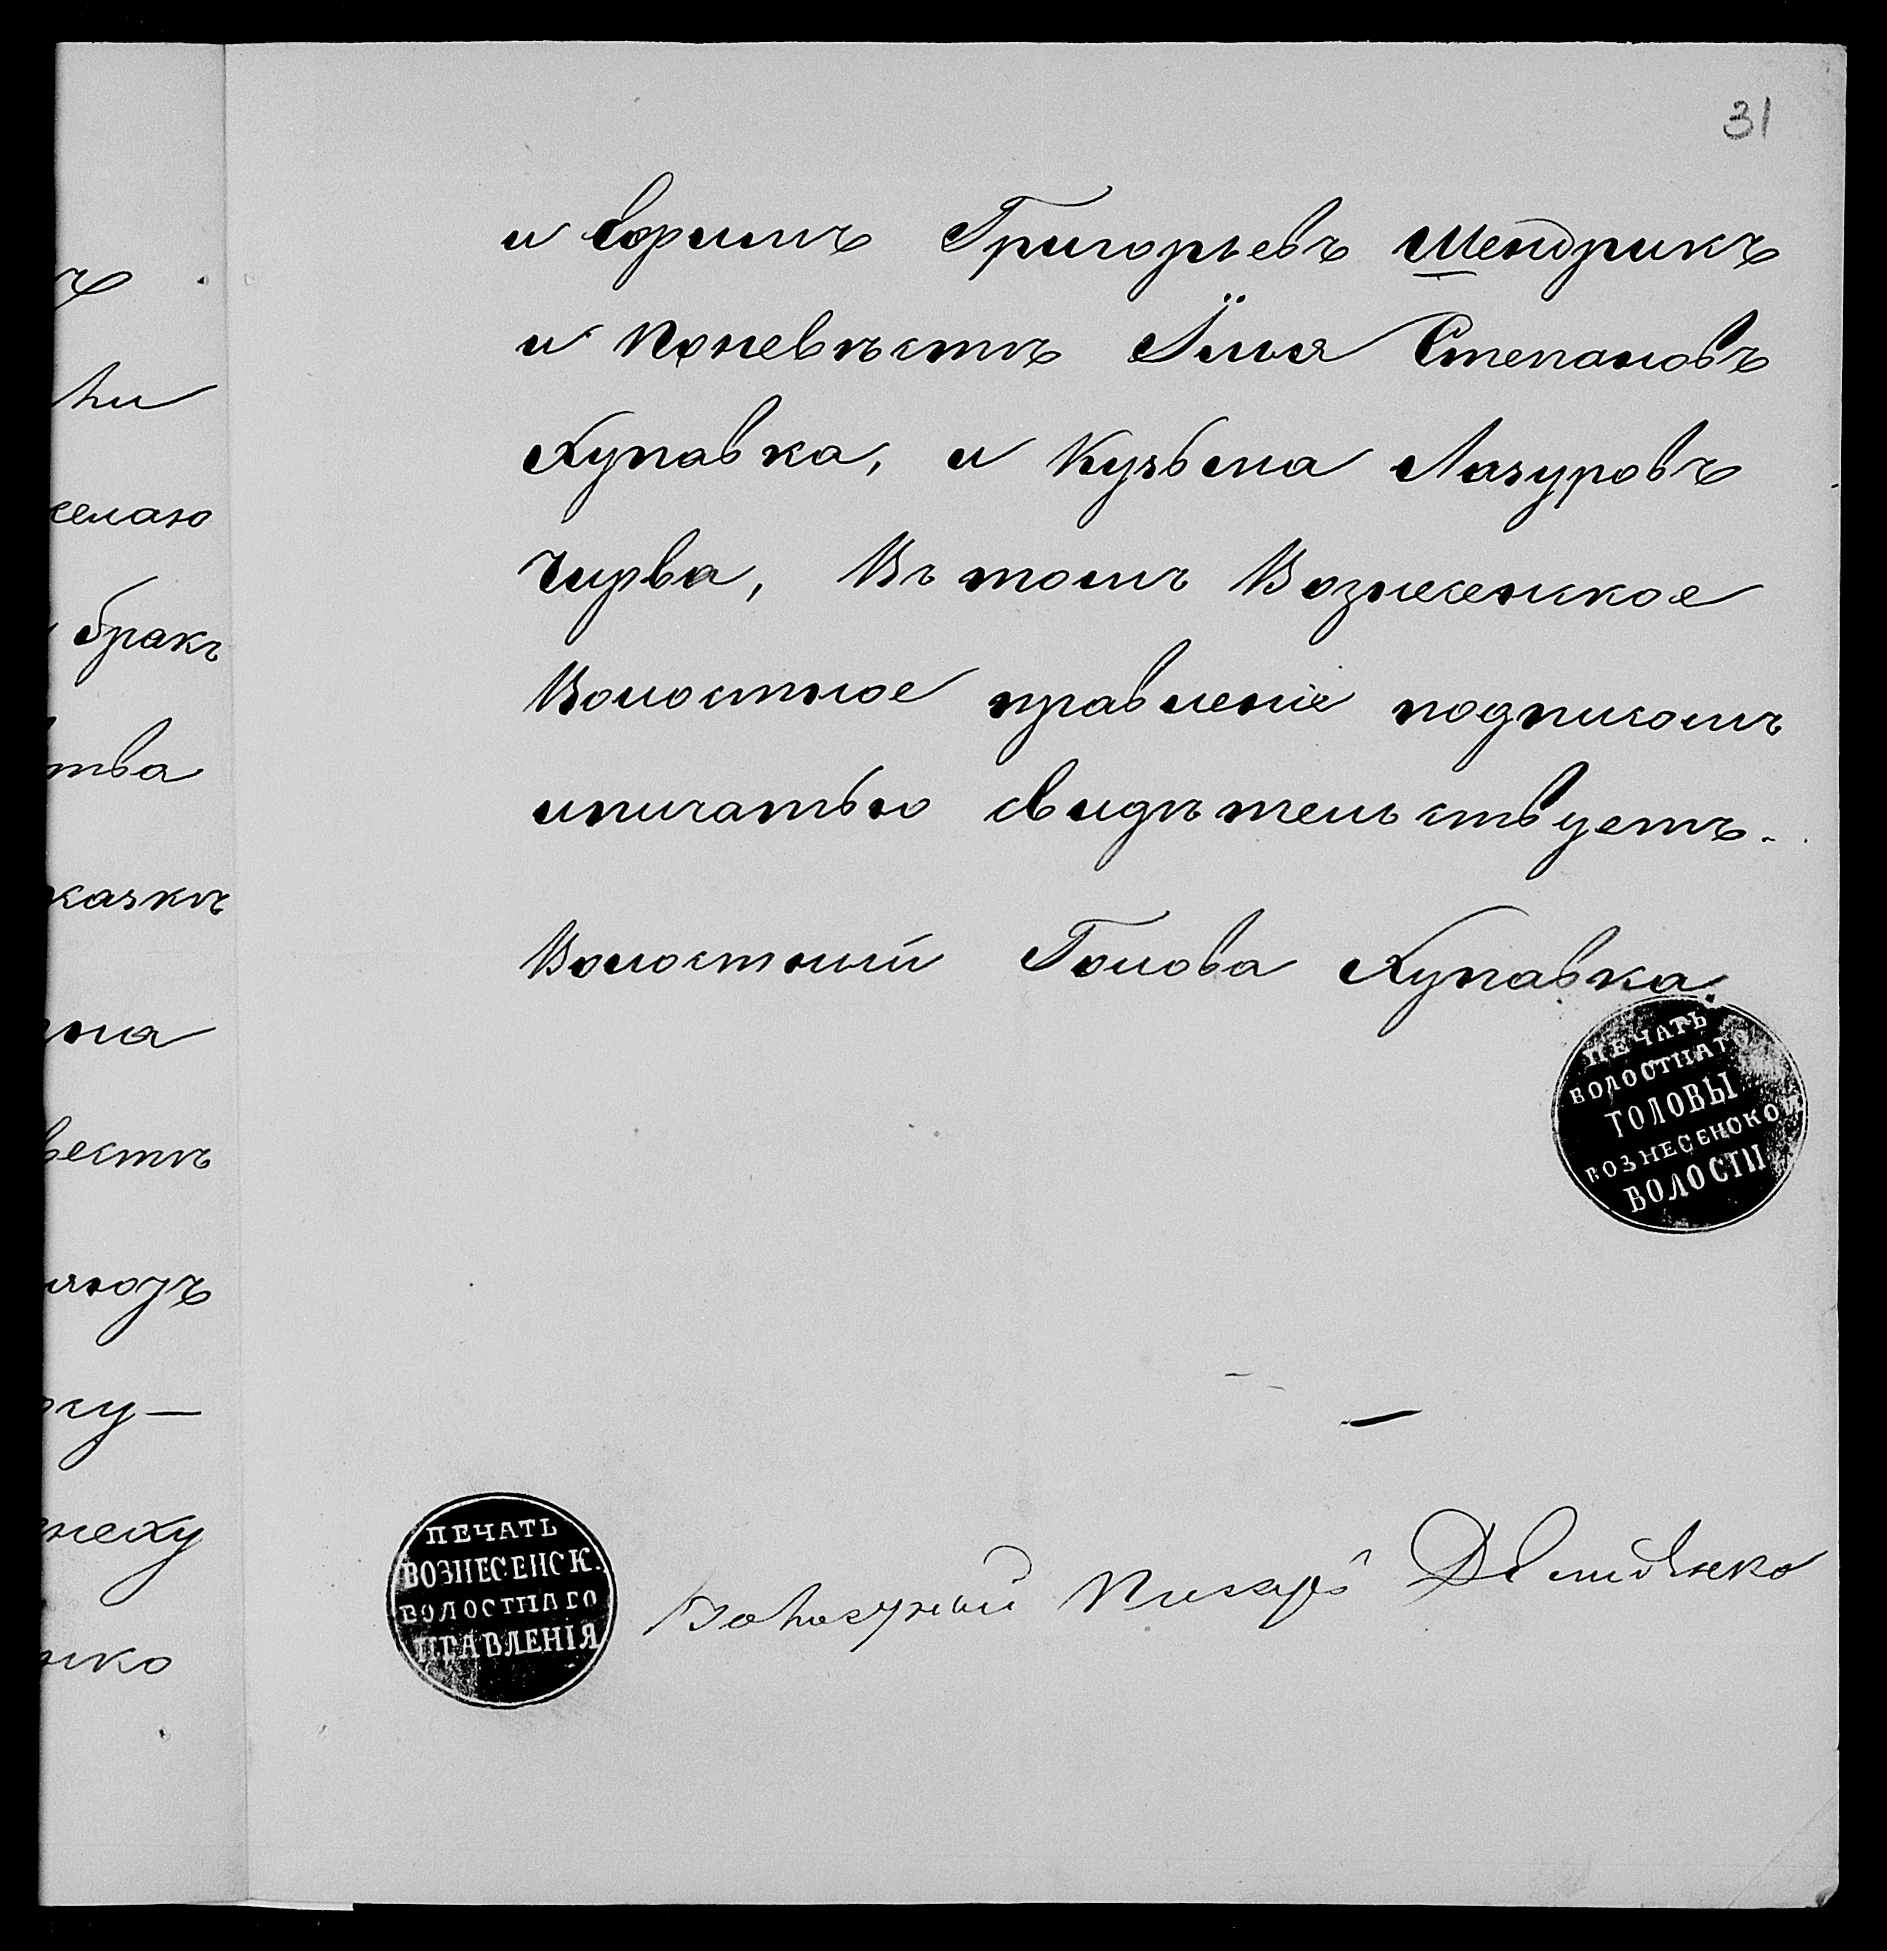 31
и Ефимъ Григорьевъ Шендрикъ
и поневѣстѣ Илья Степановъ
Купавка, и Кузьма Лазуровъ
Чирва, Въ томъ Вознесенское
Волостное правленіе подписомъ
ипичатью свидѣтельствуетъ.
Волостный Голова Купавка.
ПЕЧАТЬ
ВОЛОСТНАГО
ГОЛОВЫ
ВОЗНЕСЕНСКОЙ
ВОЛОСТИ
ПЕЧАТЬ
ВОЗНЕСЕНСК.
ВОЛОСТНАГО
ПРАВЛЕНІЯ
Волостный Писарь
бракъ